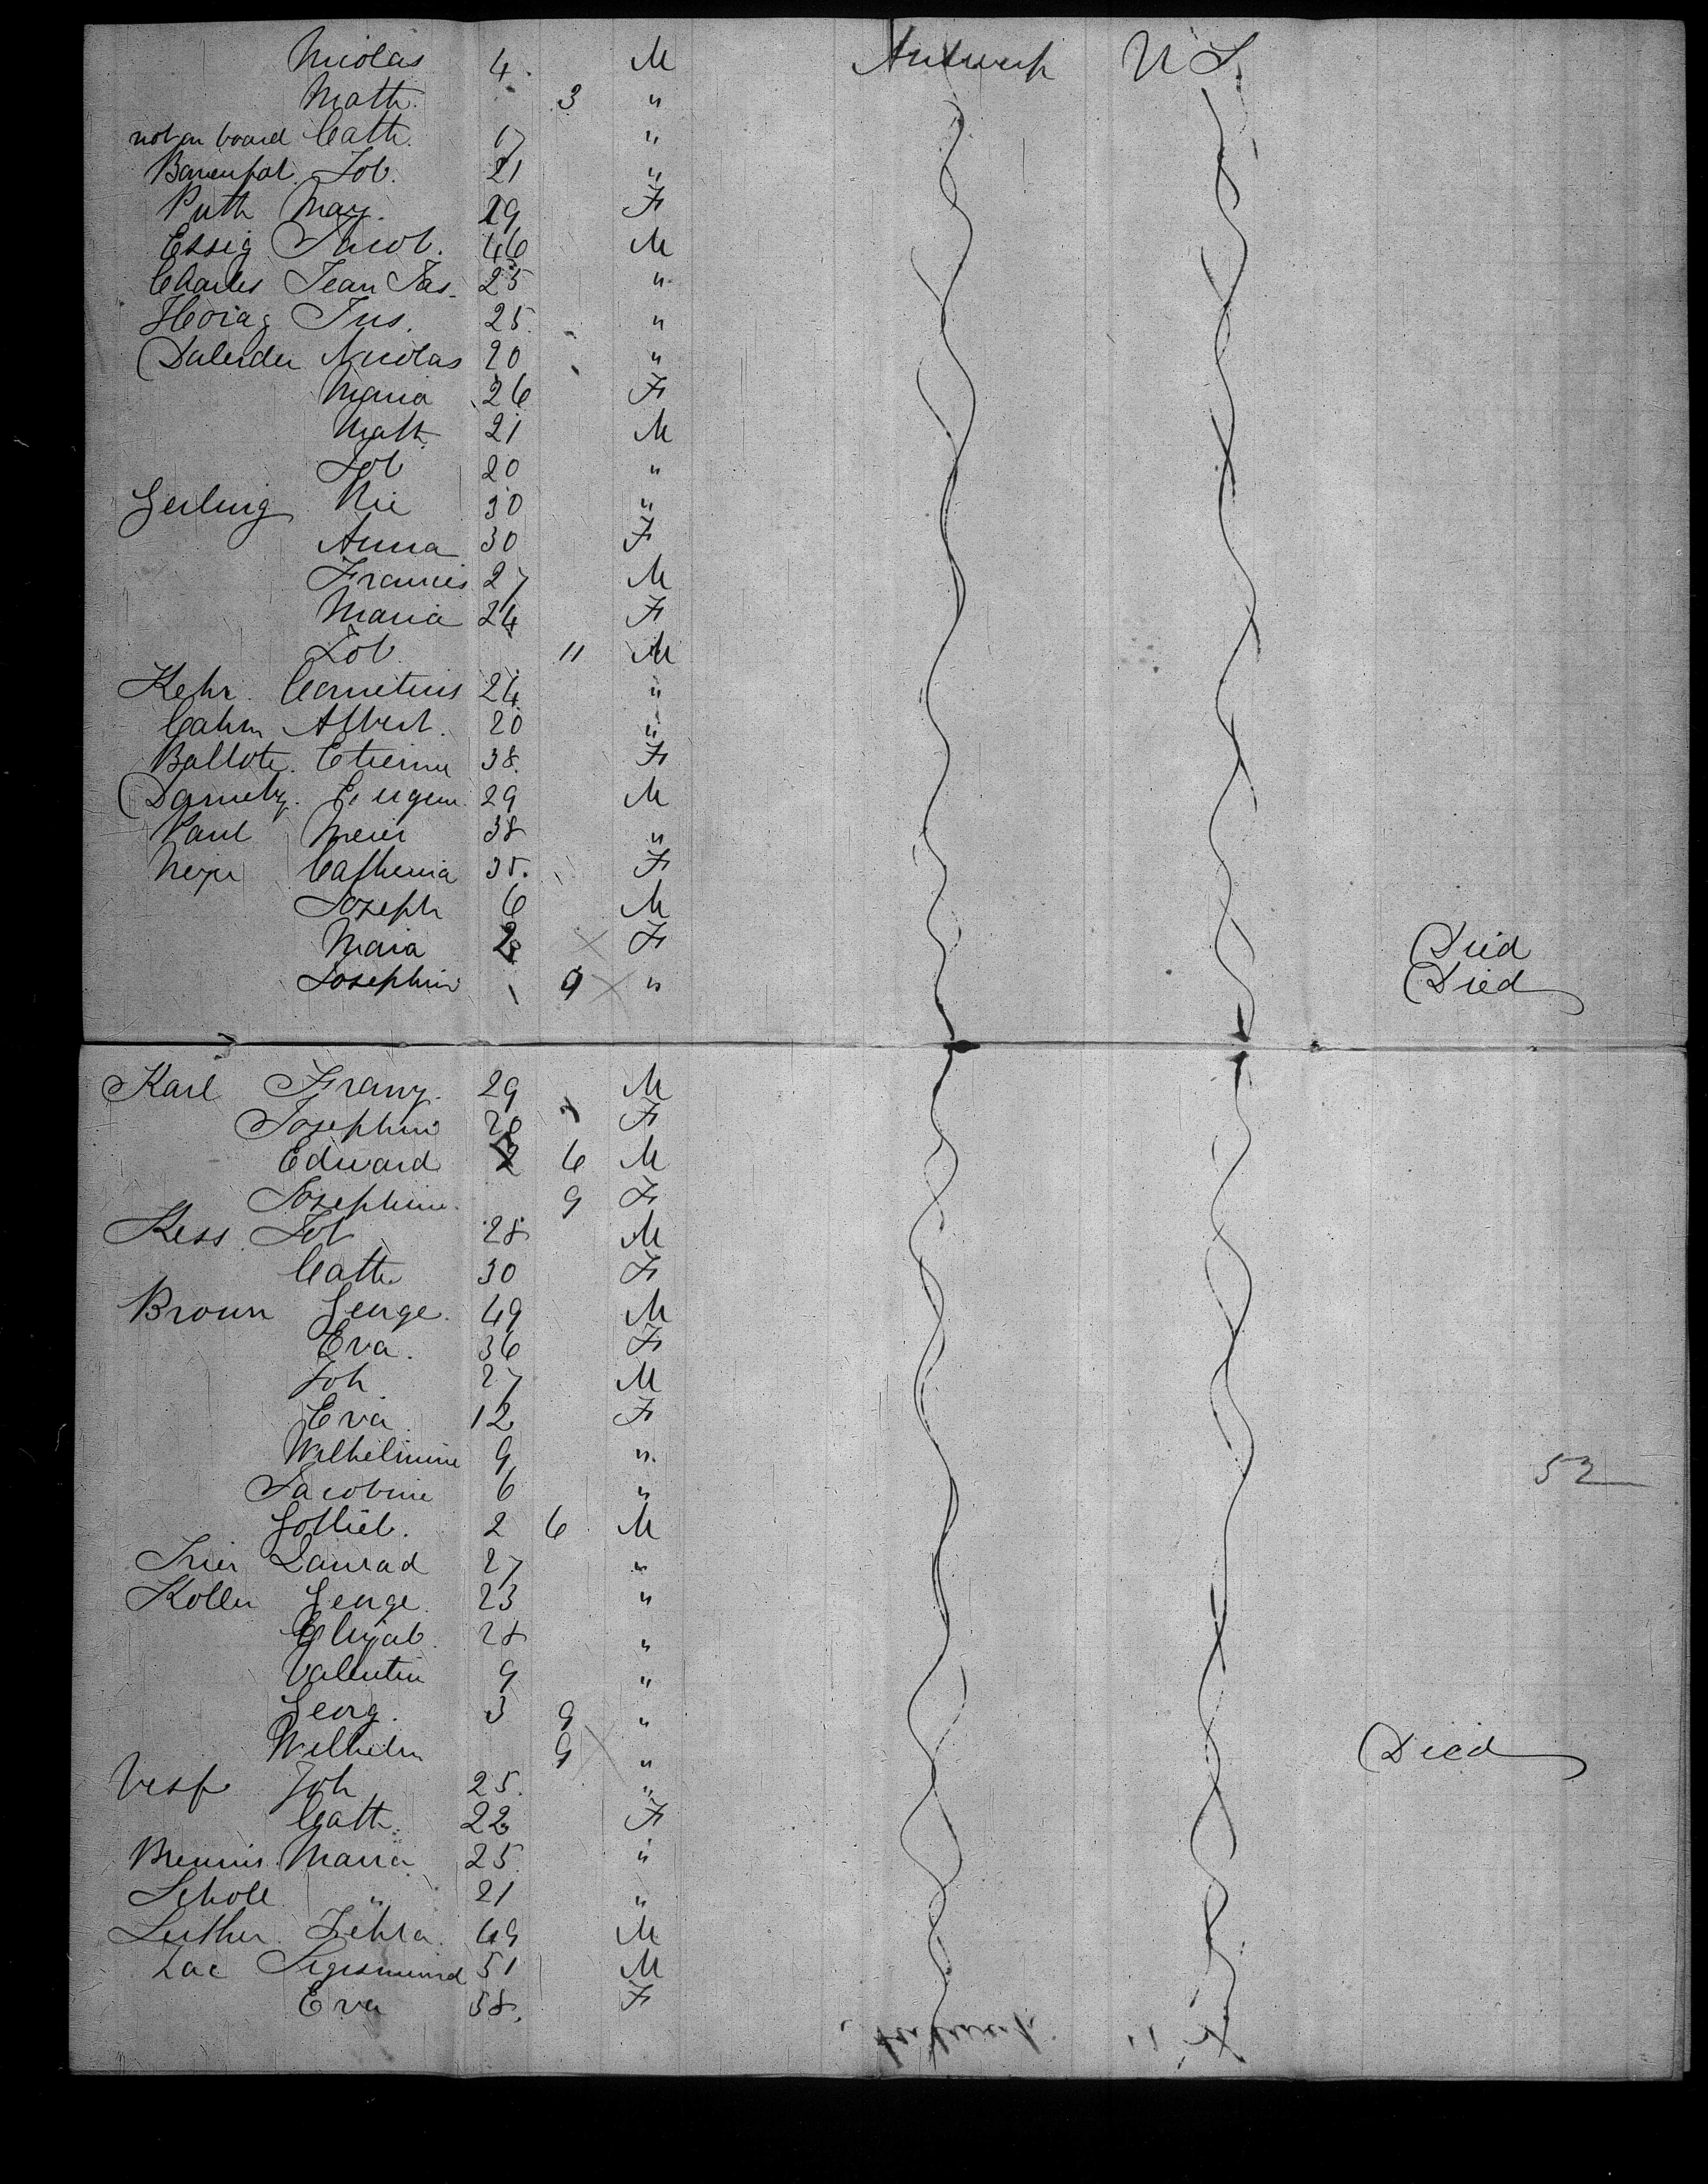 Nicolas 4. M Antwerp U S.
Math. 3 "
not on board Cath. 17 "
Joh. 21 "
Puth Mary. 29 F
Essig Jacob. 46 M
Charles Jean Jas. 25 "
25 "
Nicolas 20 "
Maria 26 F
Math. 21 M
Joh 20 "
Gerling Nic 30 "
Anna 30 F
Francis 27 M
Maria 24 F
Joh. 11 M
Kehr. Cornelius 24 "
Cahn Albert. 20 "
Ballote. Etienne 38. F
Eugene. 29 M
Paul Meier 38 "
35. F
Joseph 6 M
Maria 2 F Died
Josephine 9 " Died
Karl Franz. 29 M
Josephine 20 F
Edward 6 M
Josephine. 9 F
Kess Joh 28 M
Cath. 30 F
Broun George. 49 M
Eva. 36 F
Joh 27 M
Eva 12 F
Wilhelmine 9 " 52
Jacobine 6 "
Gottlieb. 2 6 M
Trier 27 "
Koller George. 23 "
Elizab. 28 "
Valentin 9 "
Georg. 3 9 "
Wilhelm 9 " Died
Joh 25. "
Cath. 22 F
Maria 25. "
Scholl " 21 "
Luther. 49 M
Lac Sigismund 51 M
Eva 58. F
Antwerp